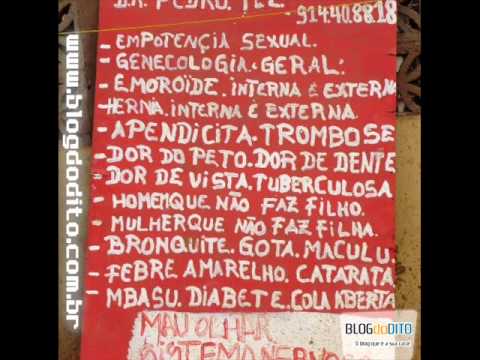 DR. PEDRO. TEL
91440.88.18
- EMPOTENÇIA SEXUAL.
- GENECOLOGIA E GERAL.
- EMOROÏDE. INTERNA É EXTERNA
HERNA. INTERNA É EXTERNA
- APENDICITA. TROMBOSE
- DOR DO PETO. DOR DE DENTE
DOR DE VISTA. TUBERCULOSA
- HOMEMQUE NÃO FAZ FILHO.
MULHERQUE NÃO FAZ FILHA.
- BRONQUITE. GOTA. MACULU
- FEBRE AMARELHO. CATARATA
- MBASU. DIABETE. COLA ABERTA
MAU OLHAR
SISTEMA NERVOSO
www.blogdodito.com.br
BLOGdoDITO
O blog que é a sua cara!